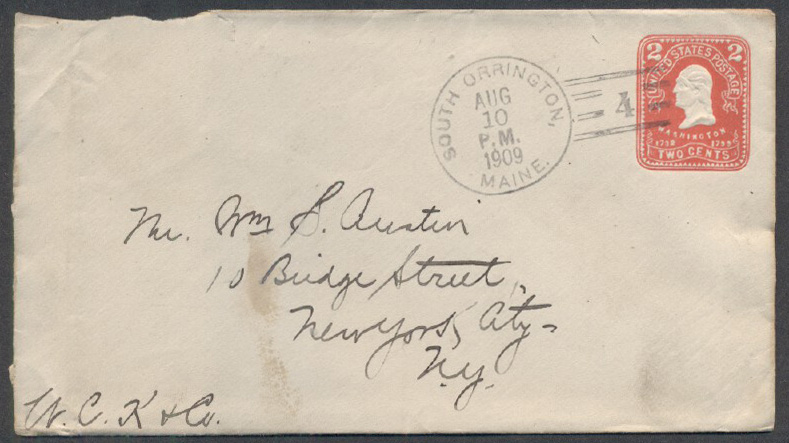 2 2
UNITED STATES POSTAGE
WASHINGTON
1732 1799
TWO CENTS
SOUTH ORRINGTON,
AUG
10
P.M.
1909
MAINE.
4
Mr. Wm S. Austin
10 Bridge Street,
New York City
N.Y.
W. C. K & Co.